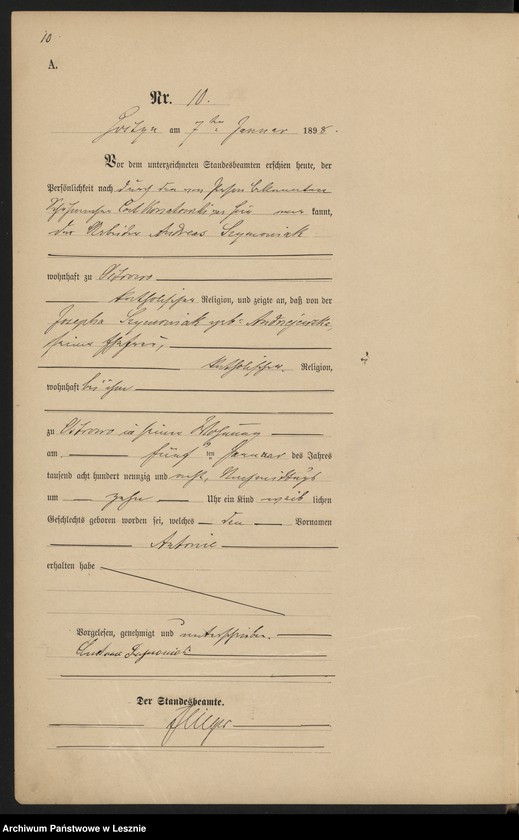 10
A.
Nr. 10.
am 7ten Januar 1898.
Vor dem unterzeichneten Standesbeamten erschien heute, der
Persönlichkeit nach durch den von Person bekannten
zu hier kannt,
der Arbeiter Andreas Szymoniak
wohnhaft zu Ostrowo
katholischer Religion, und zeigte an, daß von der
Josepha Szymoniak geb. Andrzejewska,
seiner Ehefrau,
katholischer Religion,
wohnhaft bei ihm
zu Ostrowo in seiner Wohnung
am fünften Januar des Jahres
tausend acht hundert neunzig und acht, Nachmittags
um zehn Uhr ein Kind weiblichen
Geschlechts geboren worden sei, welches den Vornamen
Antonie
erhalten habe
Vorgelesen, genehmigt und unterschrieben.
Der Standesbeamte.
Archiwum Państwowe w Lesznie